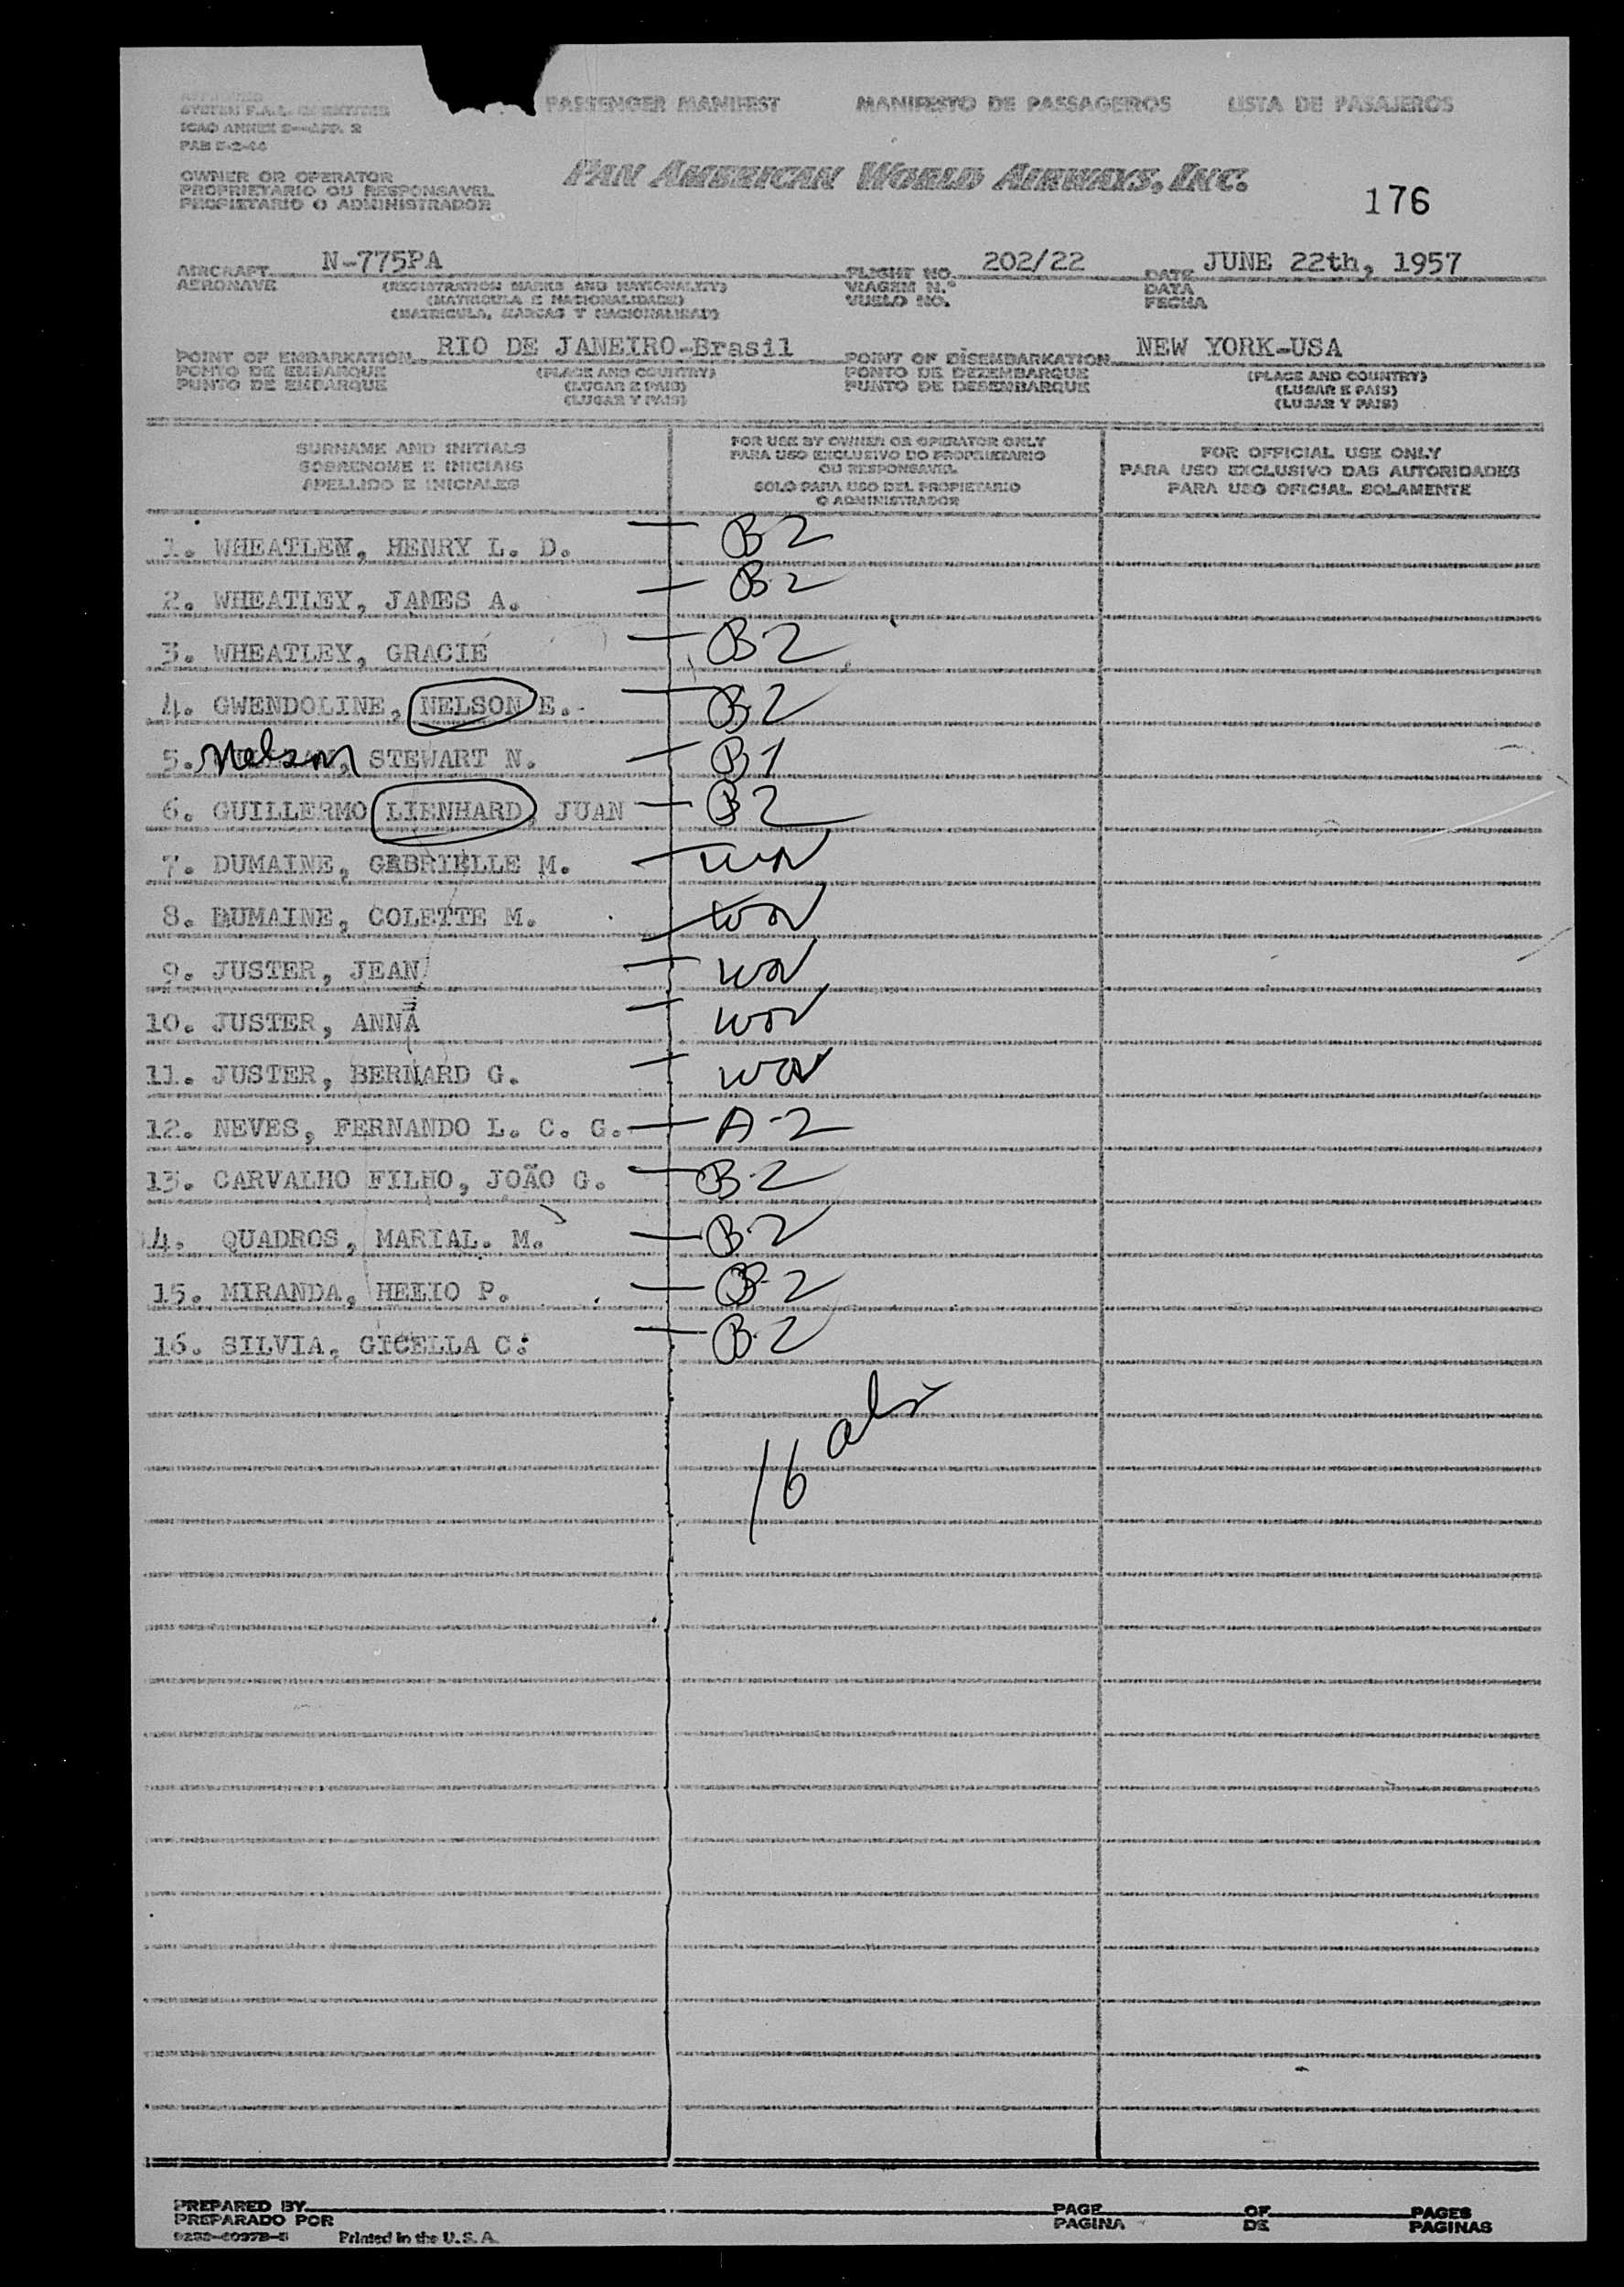 PASSENGER MANIFEST MANIFESTO DE PASSAGEIROS LISTA DE PASAJEROS
ICAO ANNEX 9—APP. 2
OWNER OR OPERATOR
PROPRIETARIO OU RESPONSAVEL
PROPIETARIO O ADMINISTRADOR
PAN AMERICAN WORLD AIRWAYS, INC.
176
AIRCRAFT N-775PA FLIGHT NO. 202/22 DATE JUNE 22th, 1957
AERONAVE (REGISTRATION MARKS AND NATIONALITY) VIAGEM N.º DATA
(MATRICULA E NACIONALIDADE) VUELO NO. FECHA
(MATRICULA, MARCAS Y NACIONALIDAD)
POINT OF EMBARKATION RIO DE JANEIRO-Brasil POINT OF DISEMBARKATION NEW YORK-USA
PONTO DE EMBARQUE (PLACE AND COUNTRY) PONTO DE DEZEMBARQUE (PLACE AND COUNTRY)
PUNTO DE EMBARQUE (LUGAR E PAIS) PUNTO DE DESEMBARQUE (LUGAR E PAIS)
(LUGAR Y PAIS) (LUGAR Y PAIS)
SURNAME AND INITIALS
SOBRENOME E INICIAIS
APELLIDO E INICIALES
FOR USE BY OWNER OR OPERATOR ONLY
PARA USO EXCLUSIVO DO PROPRIETARIO
OU RESPONSAVEL
SOLO PARA USO DEL PROPIETARIO
O ADMINISTRADOR
FOR OFFICIAL USE ONLY
PARA USO EXCLUSIVO DAS AUTORIDADES
PARA USO OFICIAL SOLAMENTE
1. WHEATLEY, HENRY L. D. — B-2
2. WHEATLEY, JAMES A. — B-2
3. WHEATLEY, GRACIE — B-2
4. GWENDOLINE, NELSON E. — B-2
5. Nelson, STEWART N. — B-1
6. GUILLERMO LIENHARD, JUAN — B-2
7. DUMAINE, GABRIELLE M. —
8. DUMAINE, COLETTE M. —
9. JUSTER, JEAN —
10. JUSTER, ANNA —
11. JUSTER, BERNARD G. —
12. NEVES, FERNANDO L. C. G. — A-2
13. CARVALHO FILHO, JOÃO G. — B-2
14. QUADROS, MARIAL. M. — B-2
15. MIRANDA, HELIO P. — B-2
16. SILVIA, GICELLA C. — B-2
16
PREPARED BY PAGE OF PAGES
PREPARADO POR PAGINA DE PAGINAS
Printed in the U.S.A.